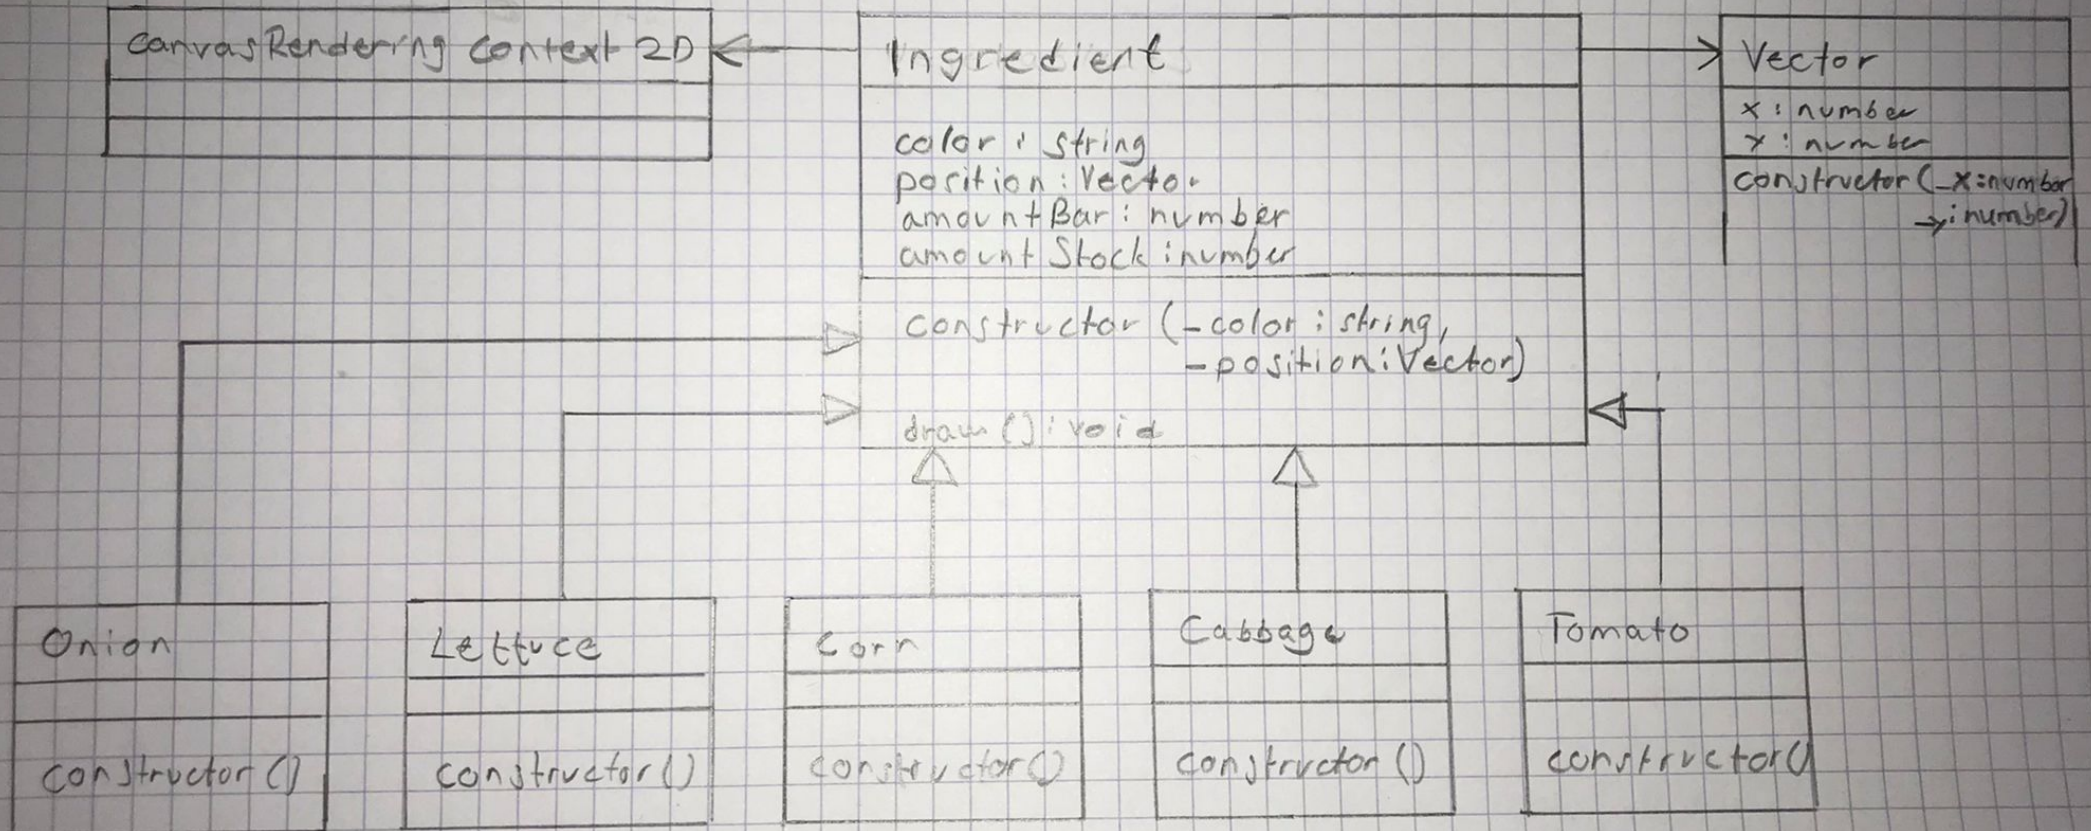 CanvasRendering Context 2D
Ingredient
color : string
position : Vector
amountBar : number
amountStock : number
constructor (_color : string,
_position : Vector)
draw () : void
Vector
x : number
y : number
constructor (_x : number
_y : number)
Onion
constructor ()
Lettuce
constructor ()
Corn
constructor ()
Cabbage
constructor ()
Tomato
constructor ()